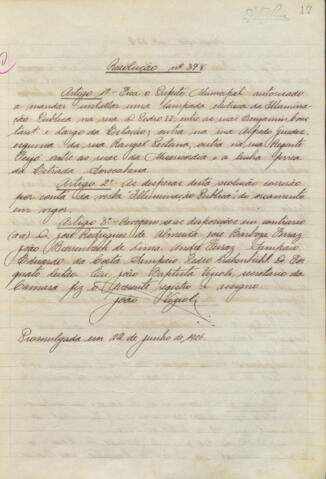 17
Resolução nº 398
Artigo 1º Fica o Prefeito Municipal autorizado
a mandar installar uma lampada electrica de Illumina-
ção Publica na rua D. Pedro II, entre as ruas Benjamin Cons-
tant e Largo da Estação; outra na rua Alfredo Guedes,
esquina da rua Rangel Pestana, outra na rua Regente
Feijó, entre as ruas da Misericordia e a linha ferrea
da Estrada Sorocabana.
Artigo 2º As despezas desta resolução correrão
por conta da verba "Illuminação Publica" do orçamento
em vigor.
Artigo 3º Revogam-se as disposições em contrario
(aa) José Rodrigues de Almeida, José Barboza Ferraz,
João de Lima, André Ferraz Sampaio,
Eduardo da Costa Sampaio, Pedro
Eu, João Baptista secretario da
Camara fiz o presente registro e assigno
João
Promulgada em 22 de junho de